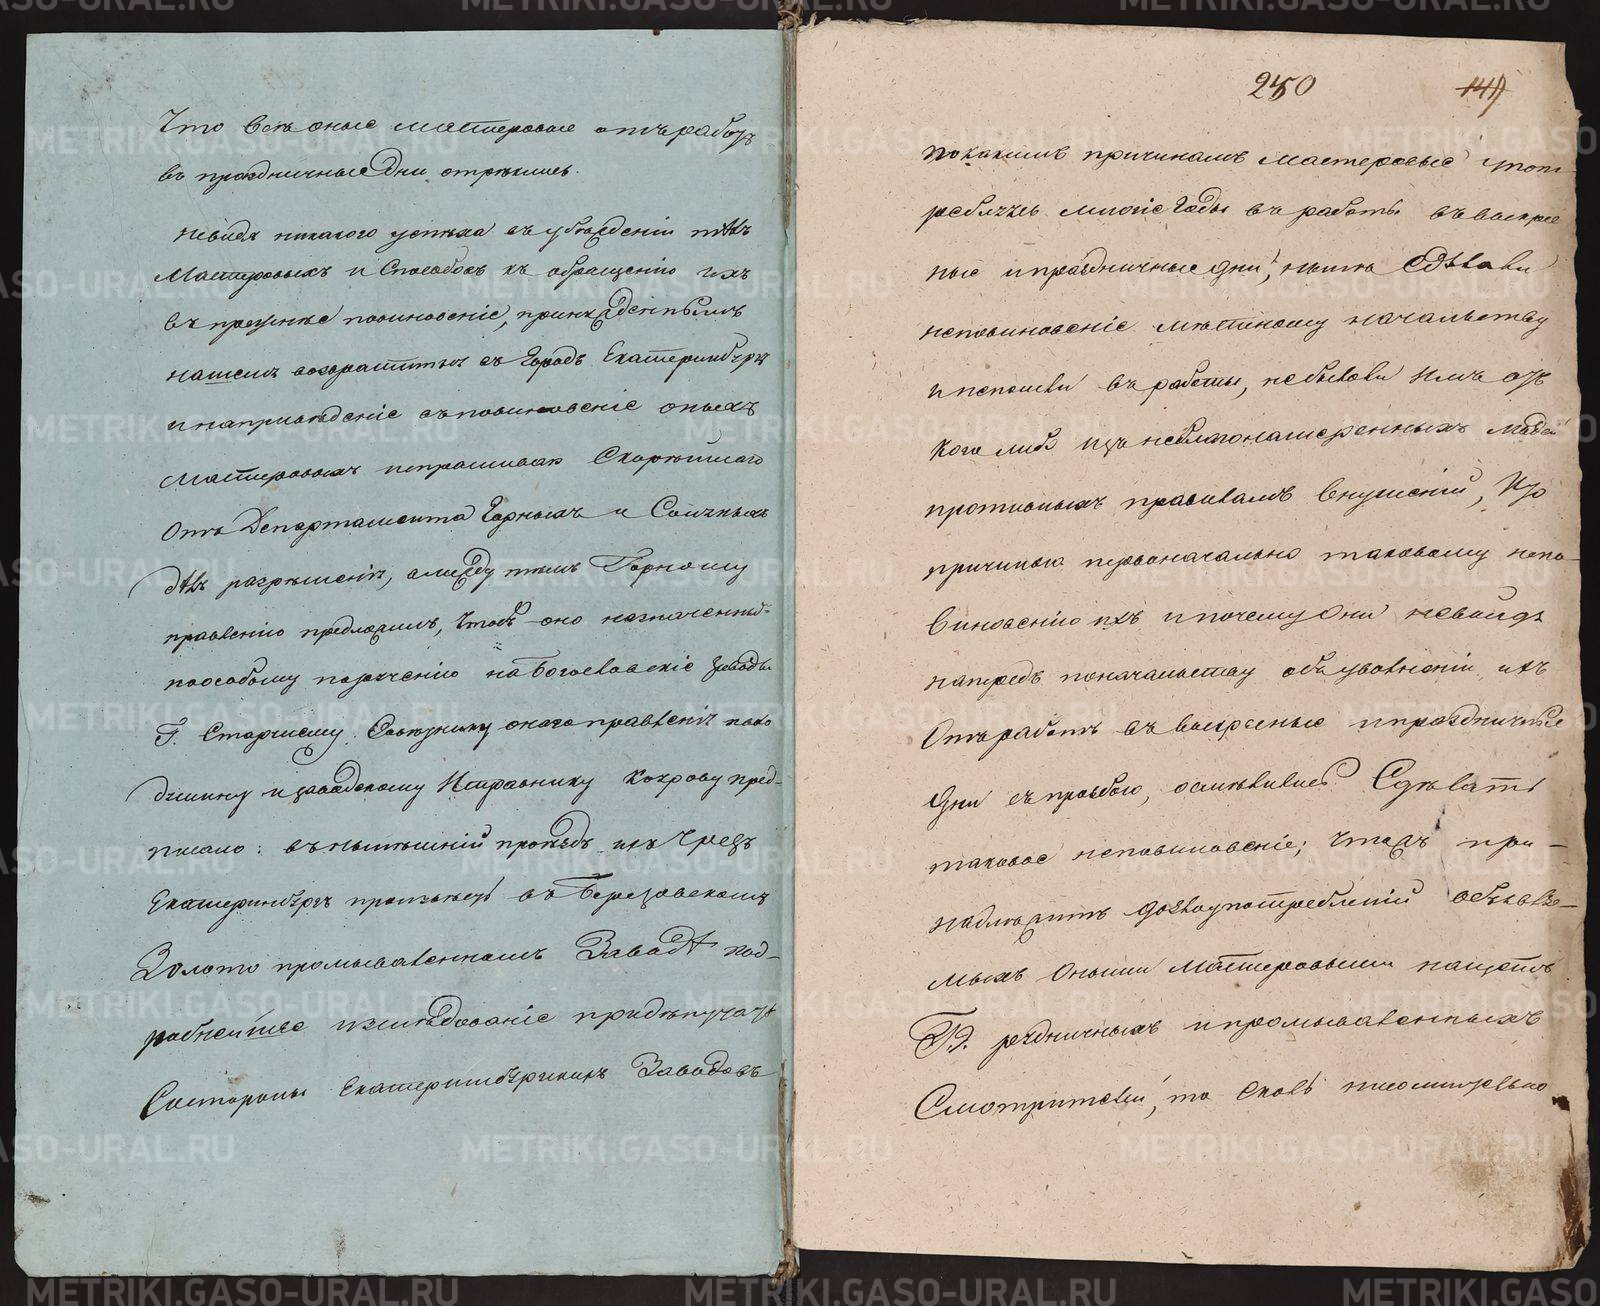 Что всѣ оные мастеровые отъ работъ
въ праздничные дни отреклись.
невидя никакого успѣха въ убѣжденіи тѣхъ
Мастеровыхъ и Способовъ къ обращенію ихъ
въ прежнее повиновеніе, принужденнымъ
нашелъ возвратиться въ Городъ Екатеринбургъ
и на приведеніе въ повиновеніе оныхъ
Мастеровыхъ испрашивая Скорѣйшаго
Отъ Департамента Горныхъ и Соляныхъ
дѣлъ разрѣшенія, а между тѣмъ Горному
правленію предложилъ, чтобъ оно назначеннымъ
по особому порученію на Богословскіе заводы
Г. Старшему Совѣтнику онаго правленія
и заводскому Исправнику пред-
писало: въ нынѣшній проѣздъ ихъ Чрезъ
Екатеринбургъ произвесть въ Березовскомъ
Золото промывательномъ Заводѣ под-
робнейшее изслѣдованіе при депутатѣ
Состороны Екатеринбургскихъ Заводовъ
250 149
по какимъ причинамъ мастеровые упот-
реблялись многіе Годы въ работы въ воскрес
ные и праздничные дни, нынѣ Сдѣлали
неповиновеніе мѣстному начальству
и непошли въ работы, небыло ли имъ отъ
Кого либо изъ неблагонамеренныхъ людей
противныхъ правиламъ внушеній, Кто
причиною первоначально таковому непо-
виновенію ихъ и почему Они невойдя
напредь по начальству объ увольненіи ихъ
Отъ работъ въ воскресные и праздничные
Дни съ прозьбою, осмѣлились Сдѣлать
таковое неповиновеніе; Чтожъ при-
надлежитъ до злоупотребленій объявля-
мыхъ Оными Мастеровыми насчетъ
ГГ. рудничныхъ и промывательныхъ
Смотрителей, то Сколь